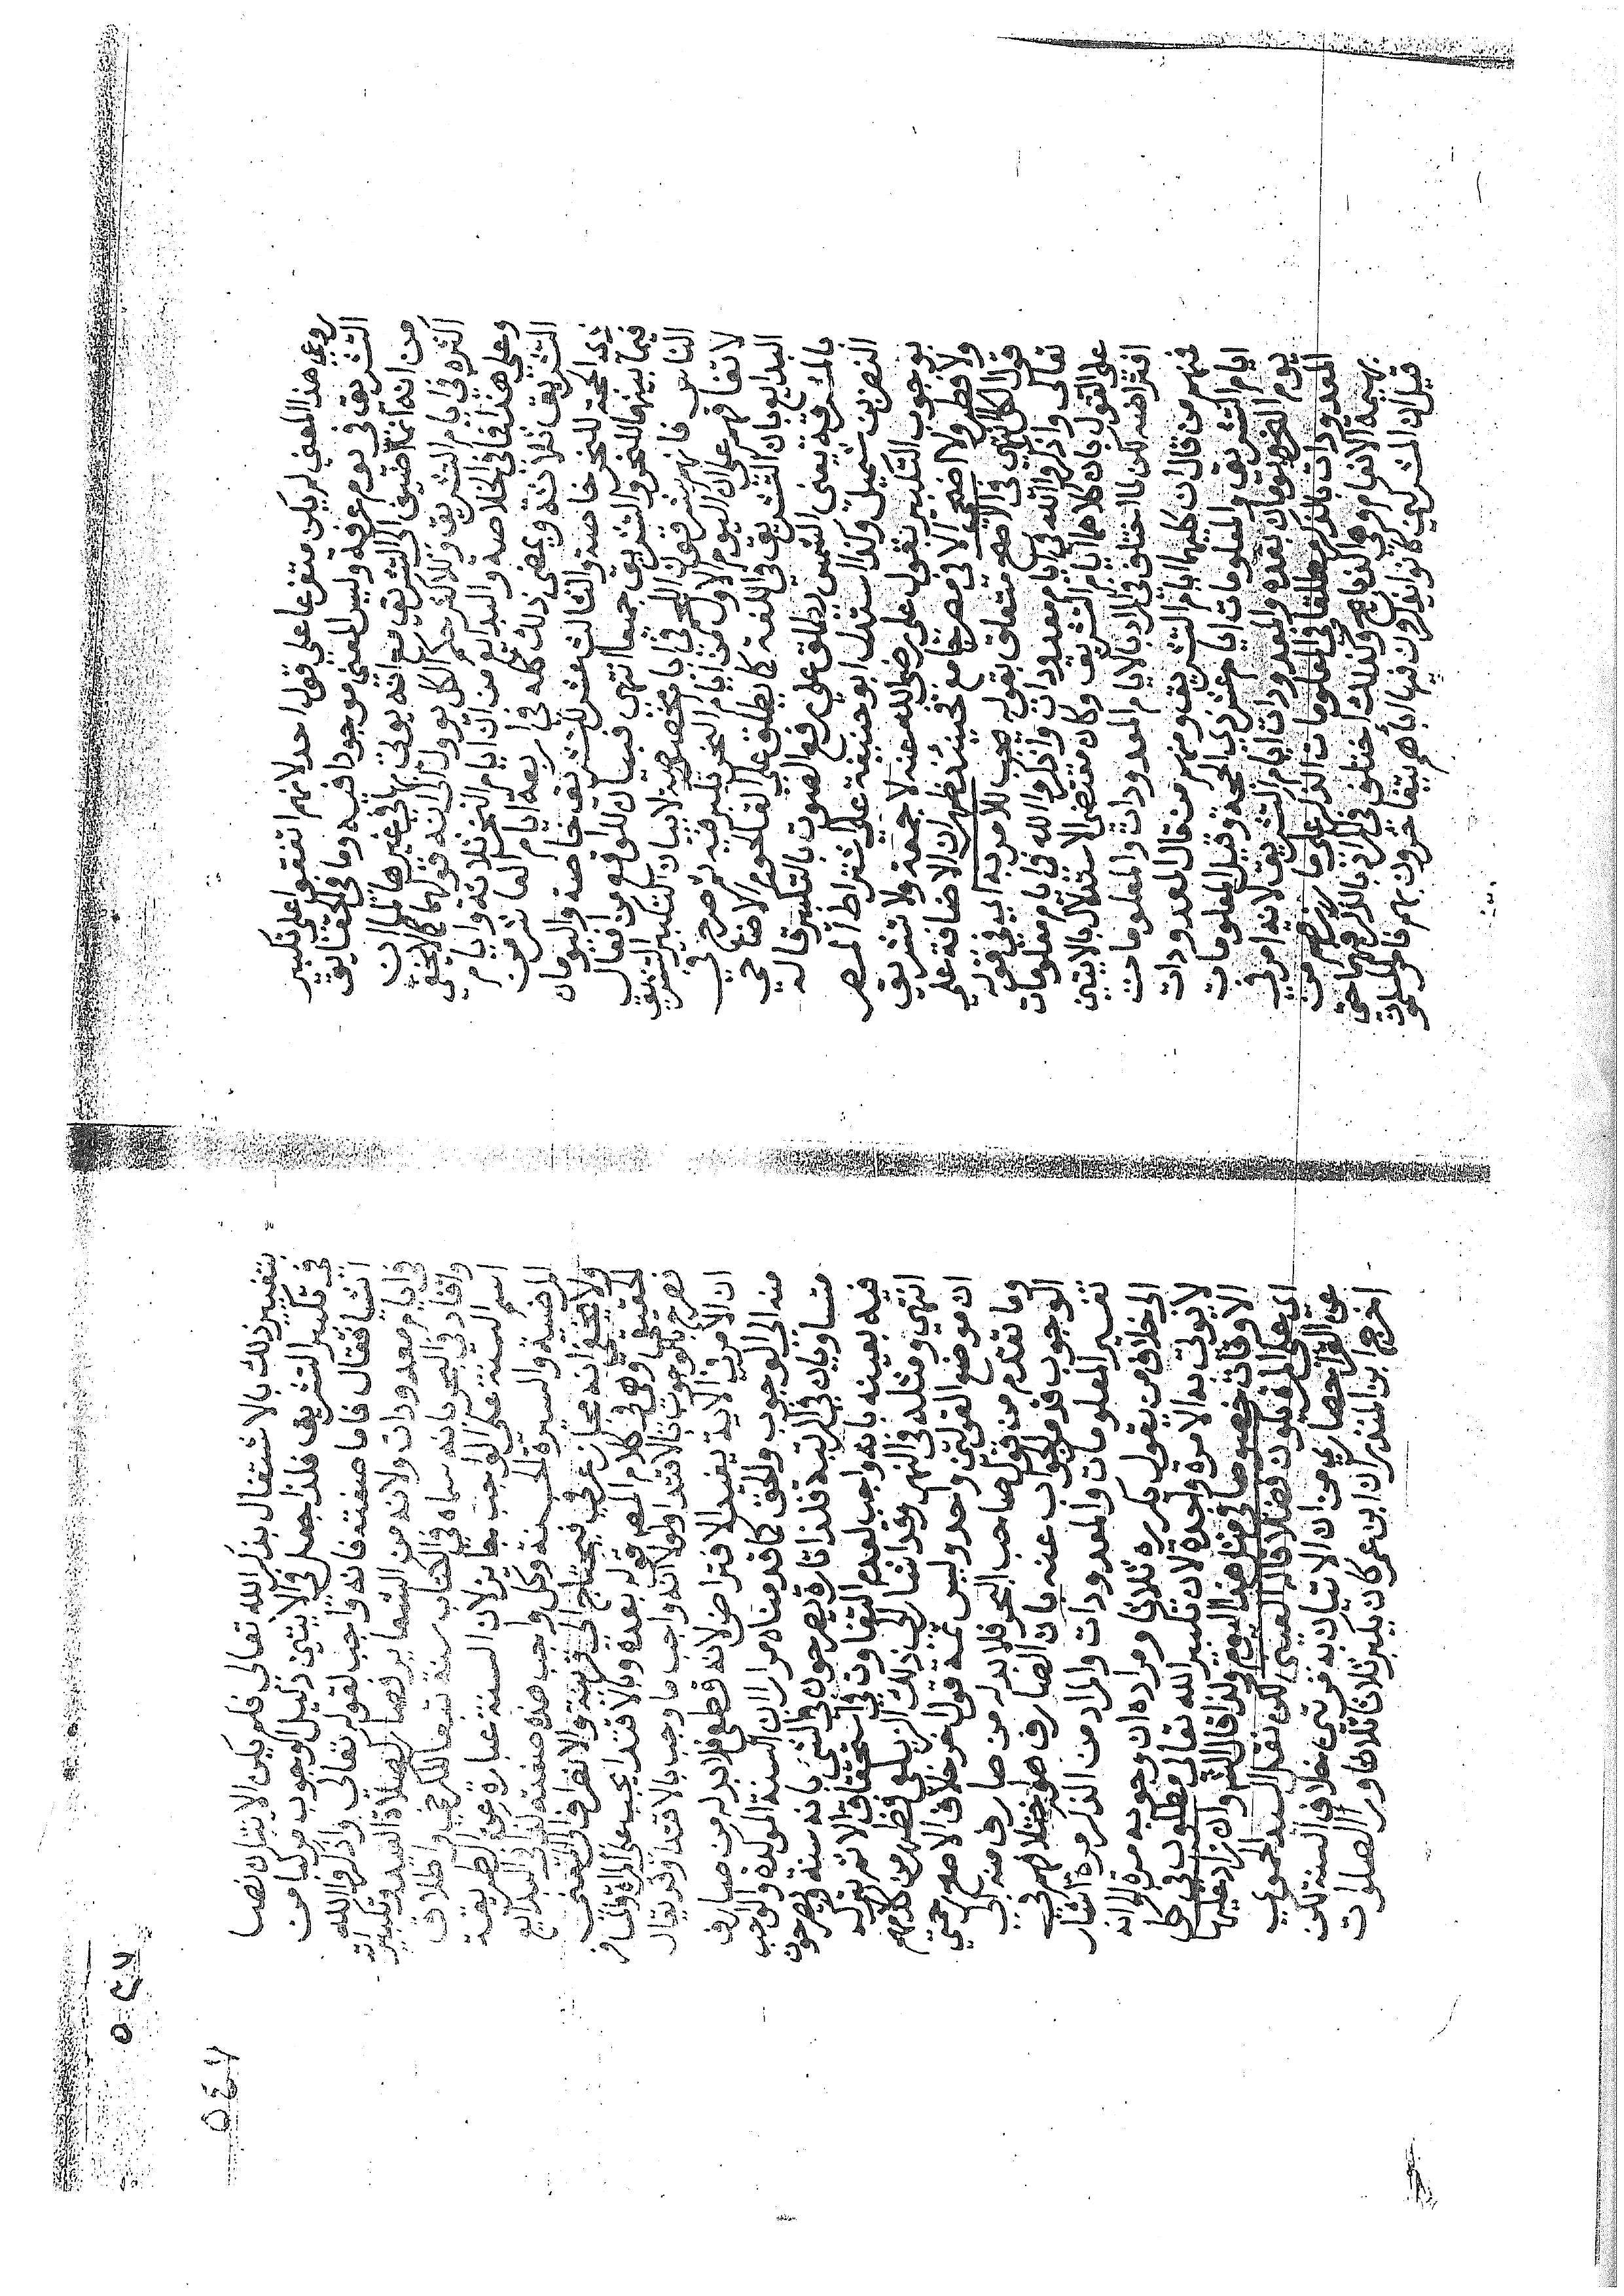 روعي هذا المعنى لم يكن متفرعا على قول احد لانهم اتفقوا على تكبير
التشريق في يوم عرفة وليس المعنى موجودا فيه وما في الحقايق
من انه انما اضيف الى التشريق مع انه يوتى به في غيرها لما ان
اكثره في ايام التشريق وللاكثر حكم الكل يوول الى انه قولهما كما لا يخفى
وعلى هذا فما في الخلاصة والبدايع من ان ايام النحر ثلاثة وايام
التشريق ثلاثة ويمضي ذلك كله في اربعة ايام العاشر من
ذي الحجة للنحر خاصة والثالث عشر للتشريق خاصة واليومان
فيما بينهما للنحر والتشريق جميعا انتهى فبيان للواقع من افعال
الناس فانهم يشرقون اللحم في ايام مخصوصة لا بيان لتكبير التشريق
لاتفاقهم على ان اليوم الاول من ايام النحر يكبر فيه ثم صرح في
البدايع بان التشريق في اللغة كما يطلق على القا لحوم الاضاحي
بالمشرقة يعني الشمس يطلق على رفع الصوت بالتكبير قاله
النضر بن شميل ولذا استدل ابو حنيفة على اشتراط المصر
بوجوب التكبير بقول علي رضي الله عنه لا جمعة ولا تشريق
ولا فطر ولا اضحى الا في مصر جامع فحينئذ ظهر ان الاضافة على
قول الكل انتهى في الاصح متعلق بقوله يجب للامر به اي في قوله
تعالى واذكروا الله في ايام معدودات واذكروا الله في ايام معلومات
على القول بان كلاهما ايام التشريق وكان مقتضى الاستدلال بالايتين
افتراضه لكن لما اختلف في المراد بالايام المعدودات والمعلومات
فمنهم من قال ان كليهما ايام التشريق ومنهم من قال المعدودات
ايام التشريق والمعلومات ايام عشر ذي الحجة وقيل المعلومات
يوم النحر ويومان بعده والمعدودات ايام التشريق لانه امر في
المعدودات بالذكر مطلقا وفي المعلومات الذكر على ما رزقهم من
بهيمة الانعام وهي الذبايح وكذلك اختلف في المراد بالذكر فيهما حتى
قيل ان المشركين كانوا يذكرون فيها اباهم يتفاخرون بهم فامر المسلمون
بتغيير ذلك بالاشتغال بذكر الله تعالى فلم يكن الايتان نصا
في تكبير التشريق فلذا جعل في الايتين دليل الوجوب مركبا من
اثنين فقال فاما صفته فانه واجب لقوله تعالى واذكروا الله
في ايام معدودات ولانه من الشعاير فصار كصلاة العيد وتكبيراته
وافاد في البحر بانه سماه في الكتاب سنة تبعا للكرخي واطلاق
اسم السنة على الواجب جايز لان السنة عبارة عن الطريقة
المرضية والسيرة الحسنة وكل واجب هذه صفته كذا في البدايع
ولا يخفى انه مجاز عرفي فيحتاج الى قرينة والا انصرف الى المعنى
الحقيقي وهي في كلام المص قوله بعده وبالاقتدا يجب على المراة والمسافر
فصرح بالوجوب بالاقتدا ولولا انه واجب ما وجب بالاقتدا وقد يقال
ان الامر في الاية يفيد الافتراض لانه قطعي فلا بد له من صارف
منه الى الوجوب والحق كما قدمناه مرارا ان السنة الموكدة والواجب
متساويان في الرتبة فلذا تارة يصرحون في الشي بانه سنة ويصرحون
فيه بعينه بانه واجب لعدم التفاوت في استحقاق الاثم بتركه
انتهى ومثله في النهر وقد اشار الى ذلك الزيلعي فظهر من كلامهم
ان موضع القولين واحد وليس ثمة قول اخر خلاف الاصح كرخي
وما تقدم من قول صاحب البحر فلا بد له من صارف منه الى
الوجوب قدم الجواب عنه بان الصارف هو اختلافهم في
تفسير المعلومات والمعدودات والمراد من الذكر مرة اشار
الى خلاف من يقول يكرره ثلاثا ومراده ان وجوبه مرة الا انه
لا يوتى به الا مرة واحدة لان تكبير الله تعالى مطلوب في كل
الاوقات خصوصا في مثل هذا اليوم ولذا قال الش وان زاد عليها
اي على المرة يكون فضلا قاله العيني لكن نقل السيد الحموي
عن القرا حصاري من ان الاتيان به مرتين خلاف السنة لكن
اخرج ابن المنذر ان ابن عمر كان يكبر ثلاثا ثلاثا ورا الصلوات
٥٤٧
٥٤٧